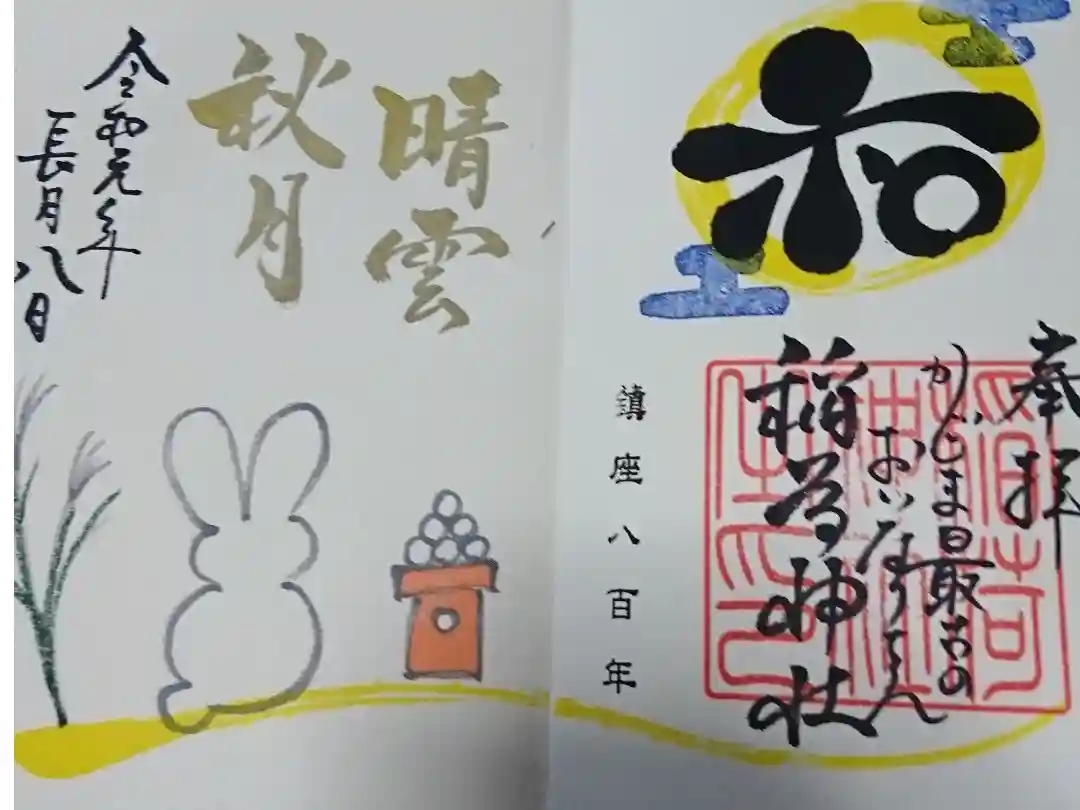 和
奉拝
かじま最古の
おいなりさん
稲荷神社
鎮座八百年
晴雲
秋月
令和元年
長月八日